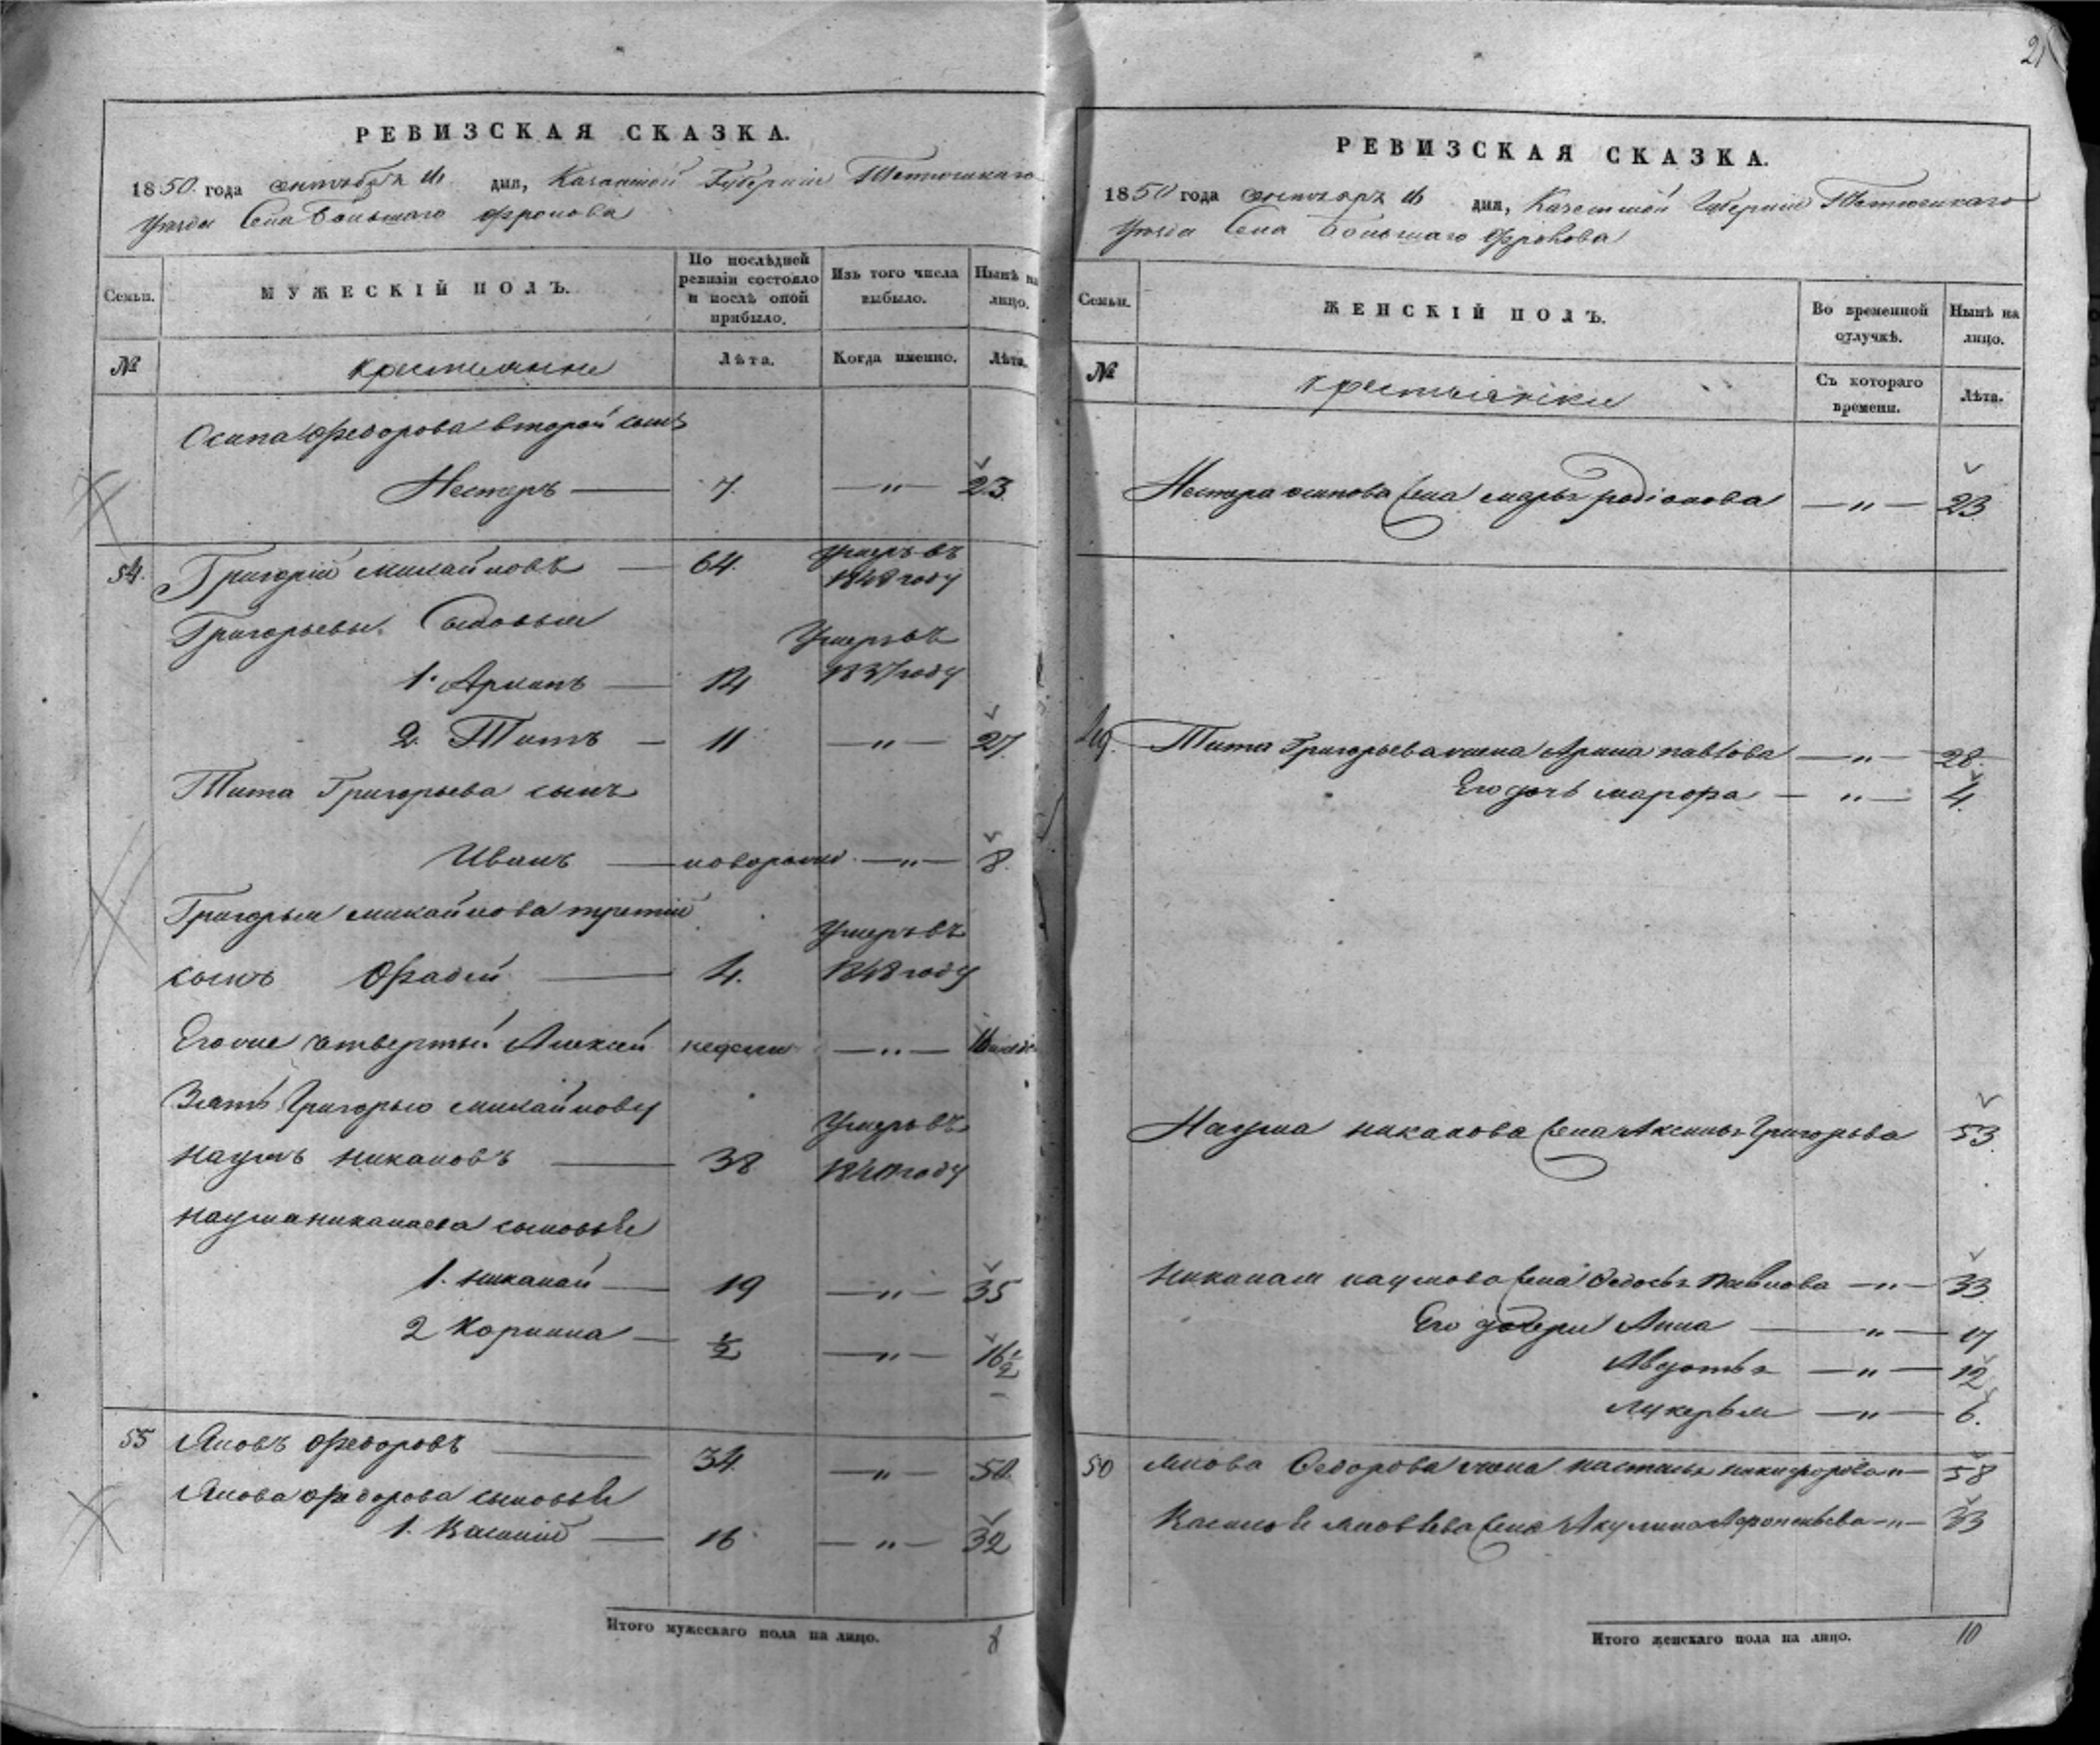 РЕВИЗСКАЯ СКАЗКА.
1850 года сентября дня, Казанской Губернии Тетюшскаго
Уезда Села Большаго Фролова
Семьи.
МУЖЕСКІЙ ПОЛЪ.
По послѣдней ревизіи состояло и послѣ оной прибыло.
Изъ того числа выбыло.
Нынѣ на лицо.
№
крестьянне
Лѣта.
Когда именно.
Лѣта.
Осипа Федорова второй сынъ
Нестеръ — 7. — „ — 23.
54. Григорій Михайловъ — 64. Умеръ въ
1848 году
Григорьевы Сыновья
Умеръ въ
1. Архипъ — 14 1837 году
2. Титъ — 11 — „ — 27.
Тита Григорьева сынъ
Иванъ — новорожд — „ — 8.
Григорья михайлова третій
Умеръ въ
сынъ Фадей — 4. 1848 году
Его же четвертый Алексей недели — „ —
Зять Григорью михайлову
Умеръ въ
наумъ никаловъ — 38
наума никалаева сыновье
1. никалай — 19 — „ — 35
2 Корнила — ½ — „ — 16½
55 Яковъ Федоровъ — 34. — „ — 50.
Якова Федорова сыновье
1. Василий — 16 — „ — 32
Итого мужескаго пола на лицо. 8
21
РЕВИЗСКАЯ СКАЗКА.
1850 года дня, Казанской Губернии Тетюшскаго
Уезда Села Большаго Фролова
Семьи.
ЖЕНСКІЙ ПОЛЪ.
Во временной отлучкѣ.
Нынѣ на лицо.
№
крестьянки
Съ котораго времени.
Лѣта.
Нестера осипова жена марья родіонова — „ — 23
Тита Григорьева жена Арина павлова — „ — 28.
Его дочь — „ — 4.
Наума никалова жена Аксинья Григорьва 53.
Никалая наумова жена Федосья Павлова — „ — 33.
Его дочери Анна — „ — 17
Авдотья — „ — 12
Лукерья — „ — 6.
50 Якова Федорова жена настасья никифорова — „ — 58
жена Акулина Афонасьева — „ — 33
Итого женскаго пола на лицо. 10